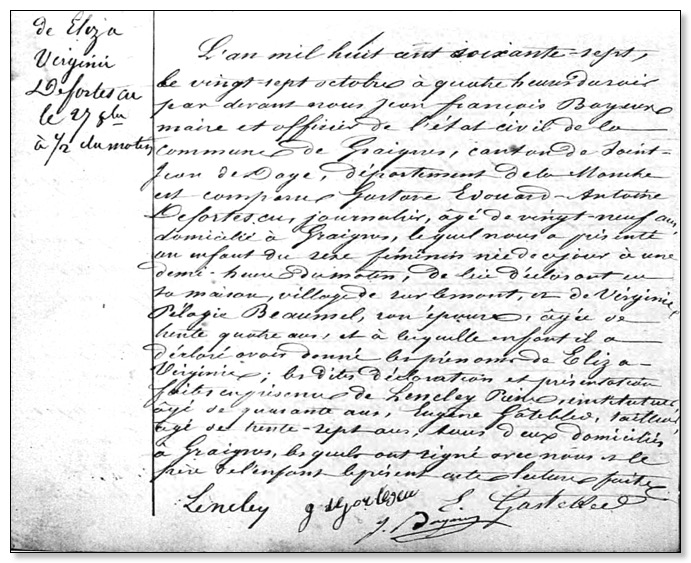 de Eliza
Virginie
Defortescu
le 27 8bre
à ½ du matin
L'an mil huit cent soixante-sept,
le vingt-sept octobre à quatre heures du soir
par devant nous Jean François Bayeux
maire et officier de l'état civil de la
commune de Graignes, canton de Saint-
Jean de Daye, département de la Manche
est comparu Gustave Edouard Antoine
Defortescu, journalier, âgé de vingt-neuf ans
domicilié à Graignes, lequel nous a présenté
un enfant du sexe féminin née de ce jour à une
demi-heure du matin, de lui déclarant en
sa maison, village de sur le mont, et de Virginie
Pélagie Beaumel, son épouse, âgée de
trente quatre ans, et à laquelle enfant il a
déclaré avoir donné les prénoms de Eliza
Virginie; les dites déclaration et présentation
faites en présence de Leneley instituteur
âgé de quarante ans, Eugène Gâtebled,
âgé de trente-sept ans, tous deux domiciliés
à Graignes, lesquels ont signé avec nous et le
père de l'enfant le présent acte lecture faite
Leneley g defortescu E. Gastebled
J. Bayeux